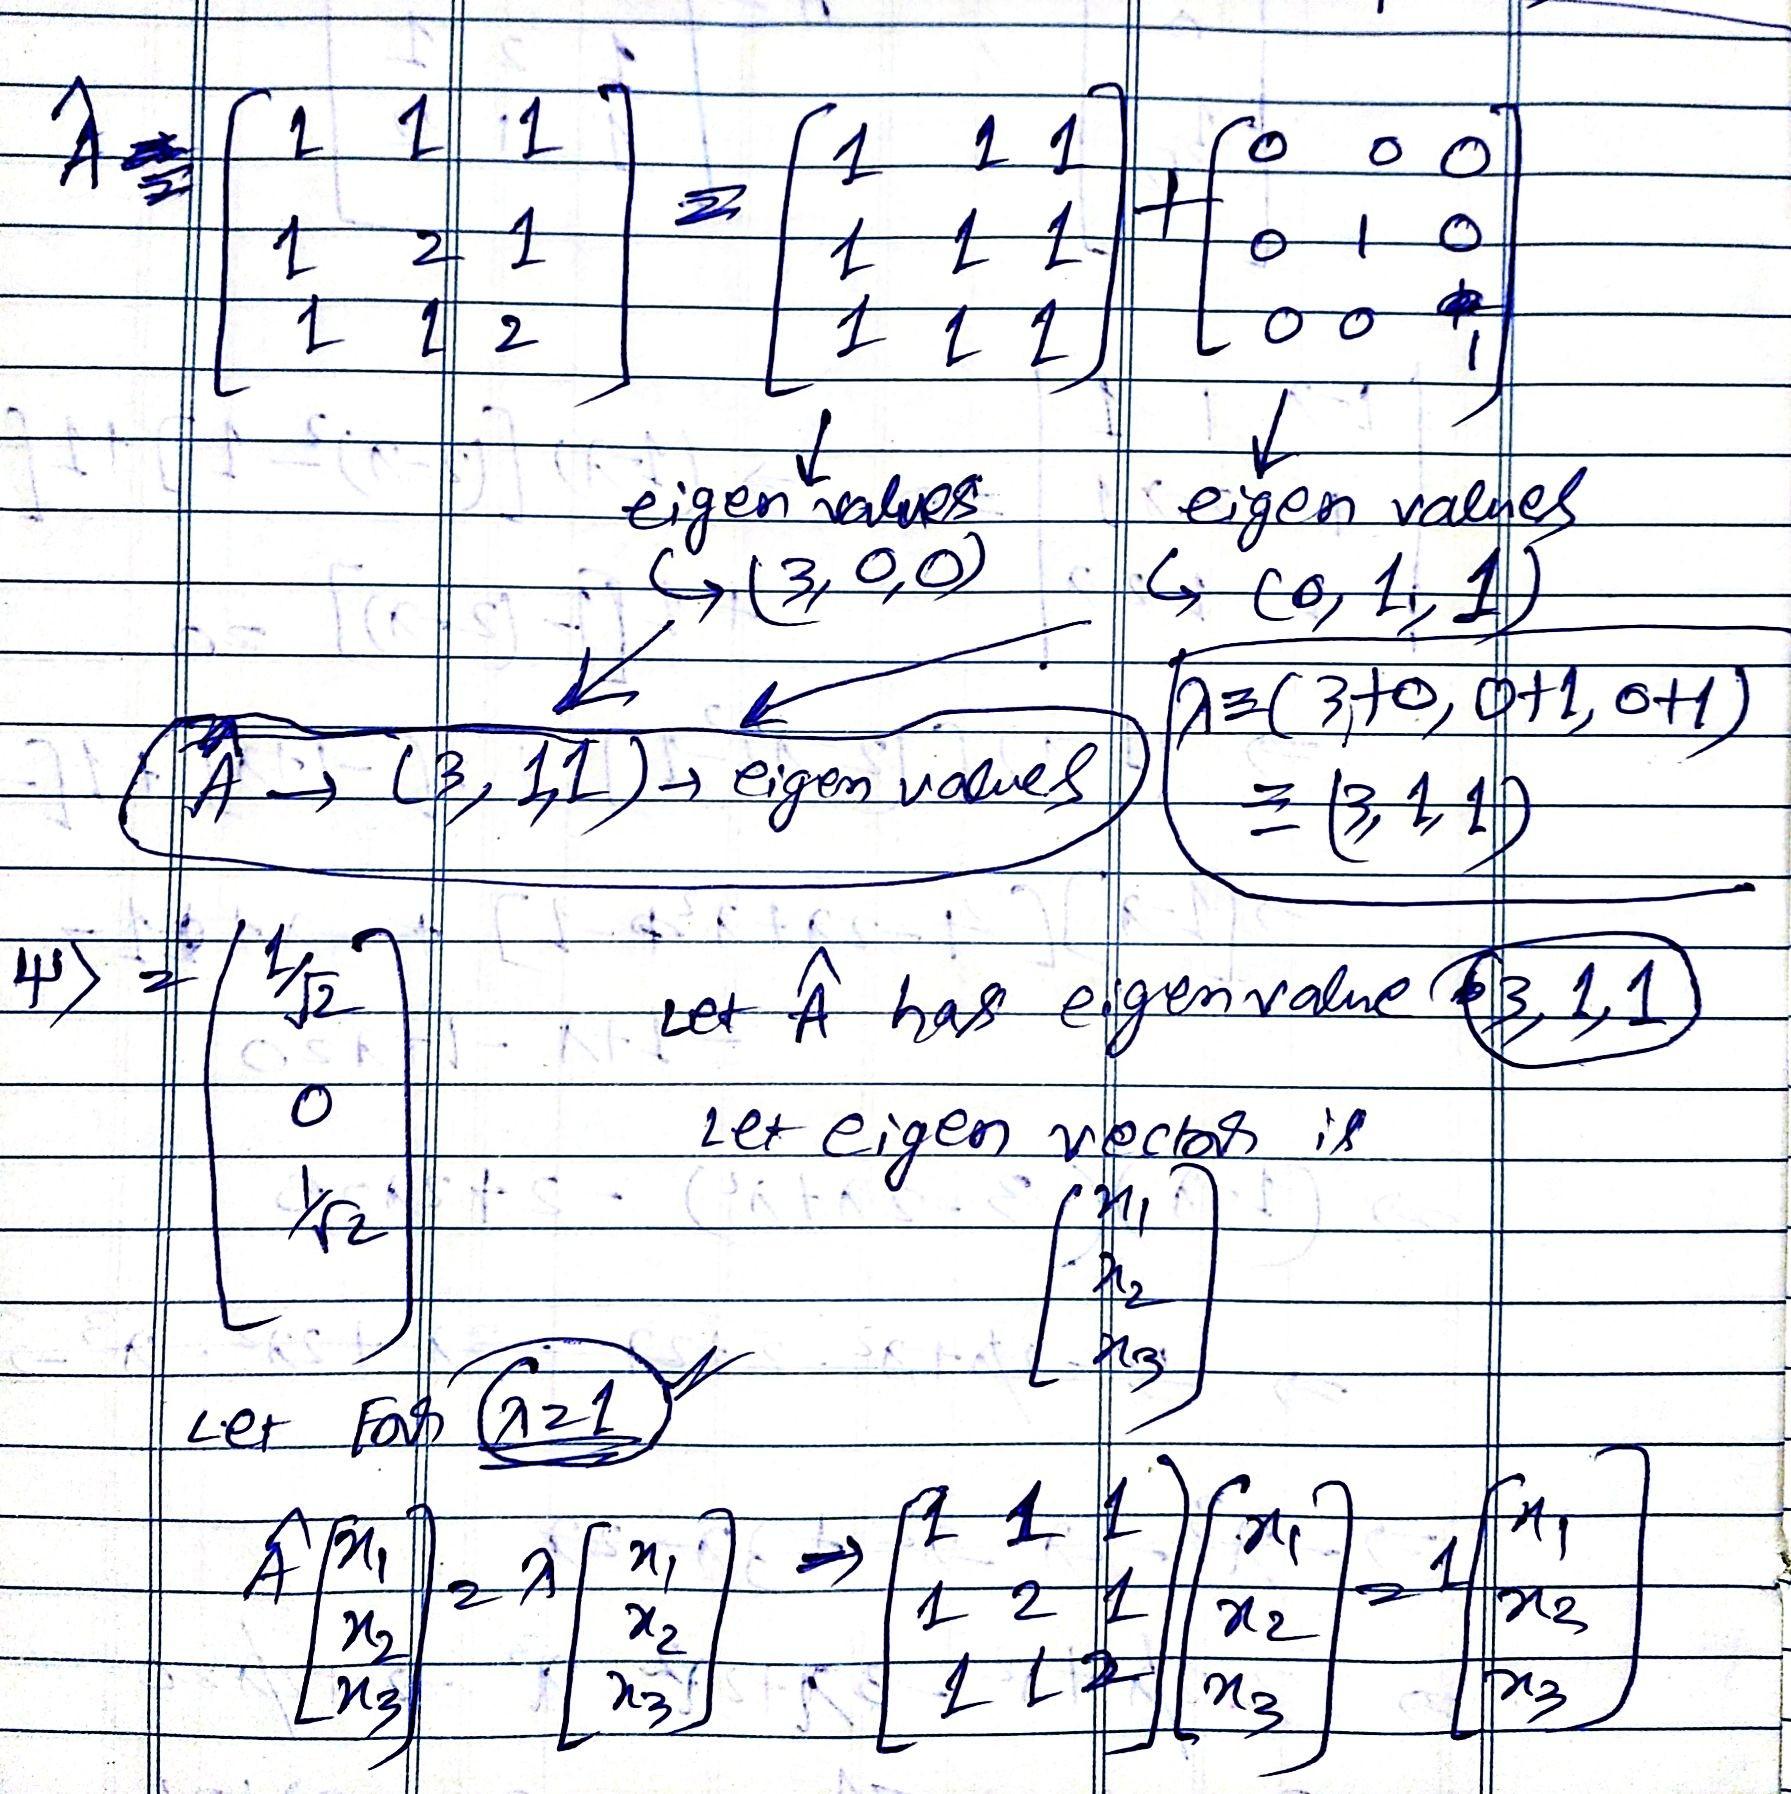 Â = [1 1 1; 1 2 1; 1 1 2] = [1 1 1; 1 1 1; 1 1 1] + [0 0 0; 0 1 0; 0 0 1]
↓ ↓
eigen values eigen values
↳ (3, 0, 0) ↳ (0, 1, 1)
λ ≡ (3+0, 0+1, 0+1)
Â → (3, 1, 1) → eigen values
≡ (3, 1, 1)
ψ⟩ = [1/√2; 0; 1/√2]
Let Â has eigen value 3, 1, 1
Let eigen vector is
[x1; x2; x3]
Let For λ=1 ✓
Â [x1; x2; x3] = λ [x1; x2; x3] → [1 1 1; 1 2 1; 1 1 2] [x1; x2; x3] = 1 [x1; x2; x3]